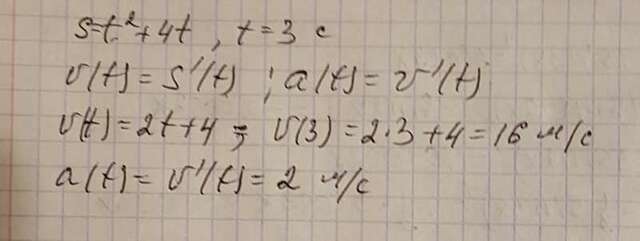 s=t²+4t, t=3 с
v(t)=s'(t); a(t)=v'(t)
v(t)=2t+4; v(3)=2·3+4=16 м/с
a(t)=v'(t)=2 м/с